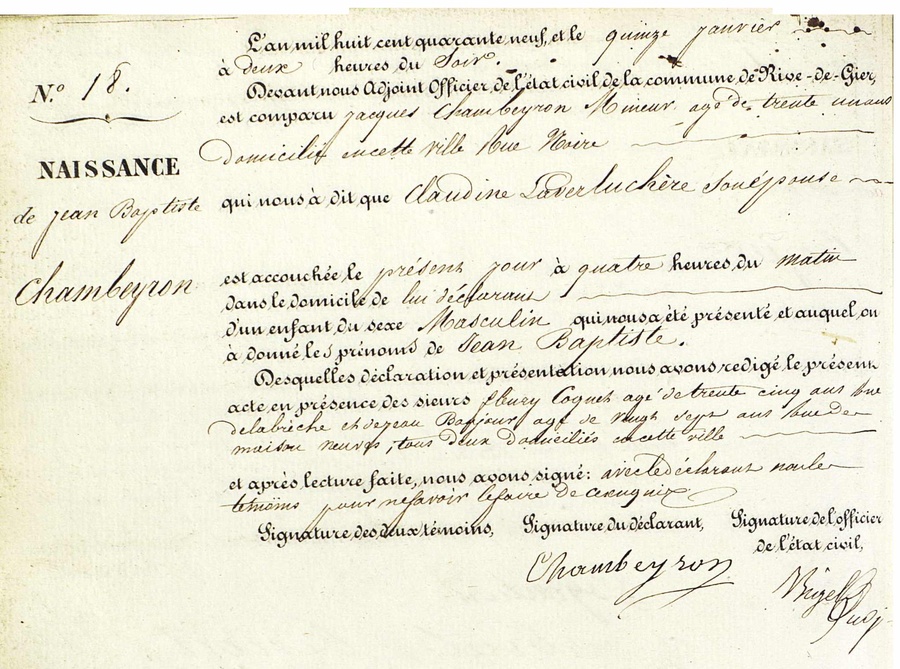 N.º 18.
NAISSANCE
de Jean Baptiste
Chambeyron
L'an mil huit cent quarante neuf, et le quinze janvier
à deux heures du Soir.
Devant nous Adjoint Officier de l'état civil de la commune de Rive-de-Gier,
est comparu jacques Chambeyron Mineur agé de trente un ans
domicilié en cette ville Rue Noire
qui nous à dit que Claudine Laverluchère Son épouse
est accouchée le présent jour à quatre heures du matin
dans le domicile de lui déclarant
d'un enfant du sexe Masculin qui nous a été présenté et auquel on
à donné les prénoms de Jean Baptiste.
Desquelles déclaration et présentation nous avons redigé le présent
acte en présence des sieurs fleury Coquet agé de trente cinq ans rue
de la brèche et de jean Bonjour agé de vingt sept ans rue de
maison neuves, tous deux domiciliés en cette ville
et après lecture faite, nous avons signé: avec le déclarant non les
témoins pour ne savoir le faire de ce enquis
Signature des deux témoins, Signature du déclarant, Signature de l'officier
de l'état civil,
Chambeyron